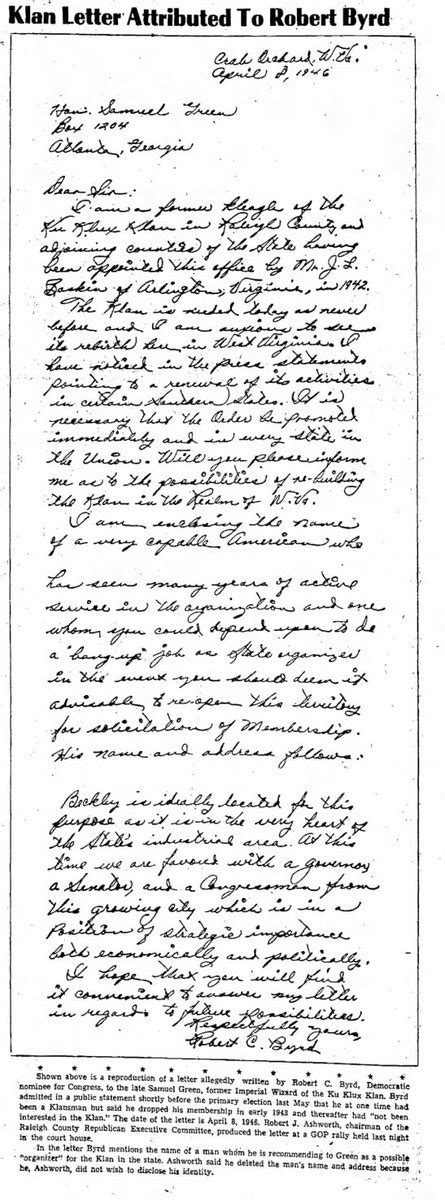 Klan Letter Attributed To Robert Byrd
Crab Orchard, W. Va.
April 8, 1946
Hon. Samuel Green
Box 1204
Atlanta, Georgia
Dear Sir:
I am a former Kleagle of the
Ku Klux Klan in Raleigh County and
adjoining counties of the State having
been appointed this office by Mr. J. L.
Baskin of Arlington, Virginia, in 1942.
The Klan is needed today as never
before and I am anxious to see
its rebirth here in West Virginia. I
have noticed in the press statements
pointing to a renewal of its activities
in certain Southern States. It is
necessary that the Order be promoted
immediately and in every state in
the Union. Will you please inform
me as to the possibilities of re-building
the Klan in the Realm of W. Va.
I am enclosing the name
of a very capable American who
has seen many years of active
service in the organization and one
whom you could depend upon to do
a "bang-up" job as State organizer
in the event you should deem it
advisable to re-open this territory
for solicitation of Membership.
His name and address follows:
Beckley is ideally located for this
purpose as it is in the very heart of
the State's industrial area. At this
time we are favored with a governor,
a Senator, and a Congressman from
this growing city which is in a
position of strategic importance
both economically and politically.
I hope that you will find
it convenient to answer my letter
in regards to future possibilities.
Respectfully yours,
Robert C. Byrd
Shown above is a reproduction of a letter allegedly written by Robert C. Byrd, Democratic
nominee for Congress, to the late Samuel Green, former Imperial Wizard of the Ku Klux Klan. Byrd
admitted in a public statement shortly before the primary election last May that he at one time had
been a Klansman but said he dropped his membership in early 1943 and thereafter had "not been
interested in the Klan." The date of the letter is April 8, 1946. Robert J. Ashworth, chairman of the
Raleigh County Republican Executive Committee, produced the letter at a GOP rally held last night
in the court house.
In the letter Byrd mentions the name of a man whom he is recommending to Green as a possible
"organizer" for the Klan in the state. Ashworth said he deleted the man's name and address because
he, Ashworth, did not wish to disclose his identity.